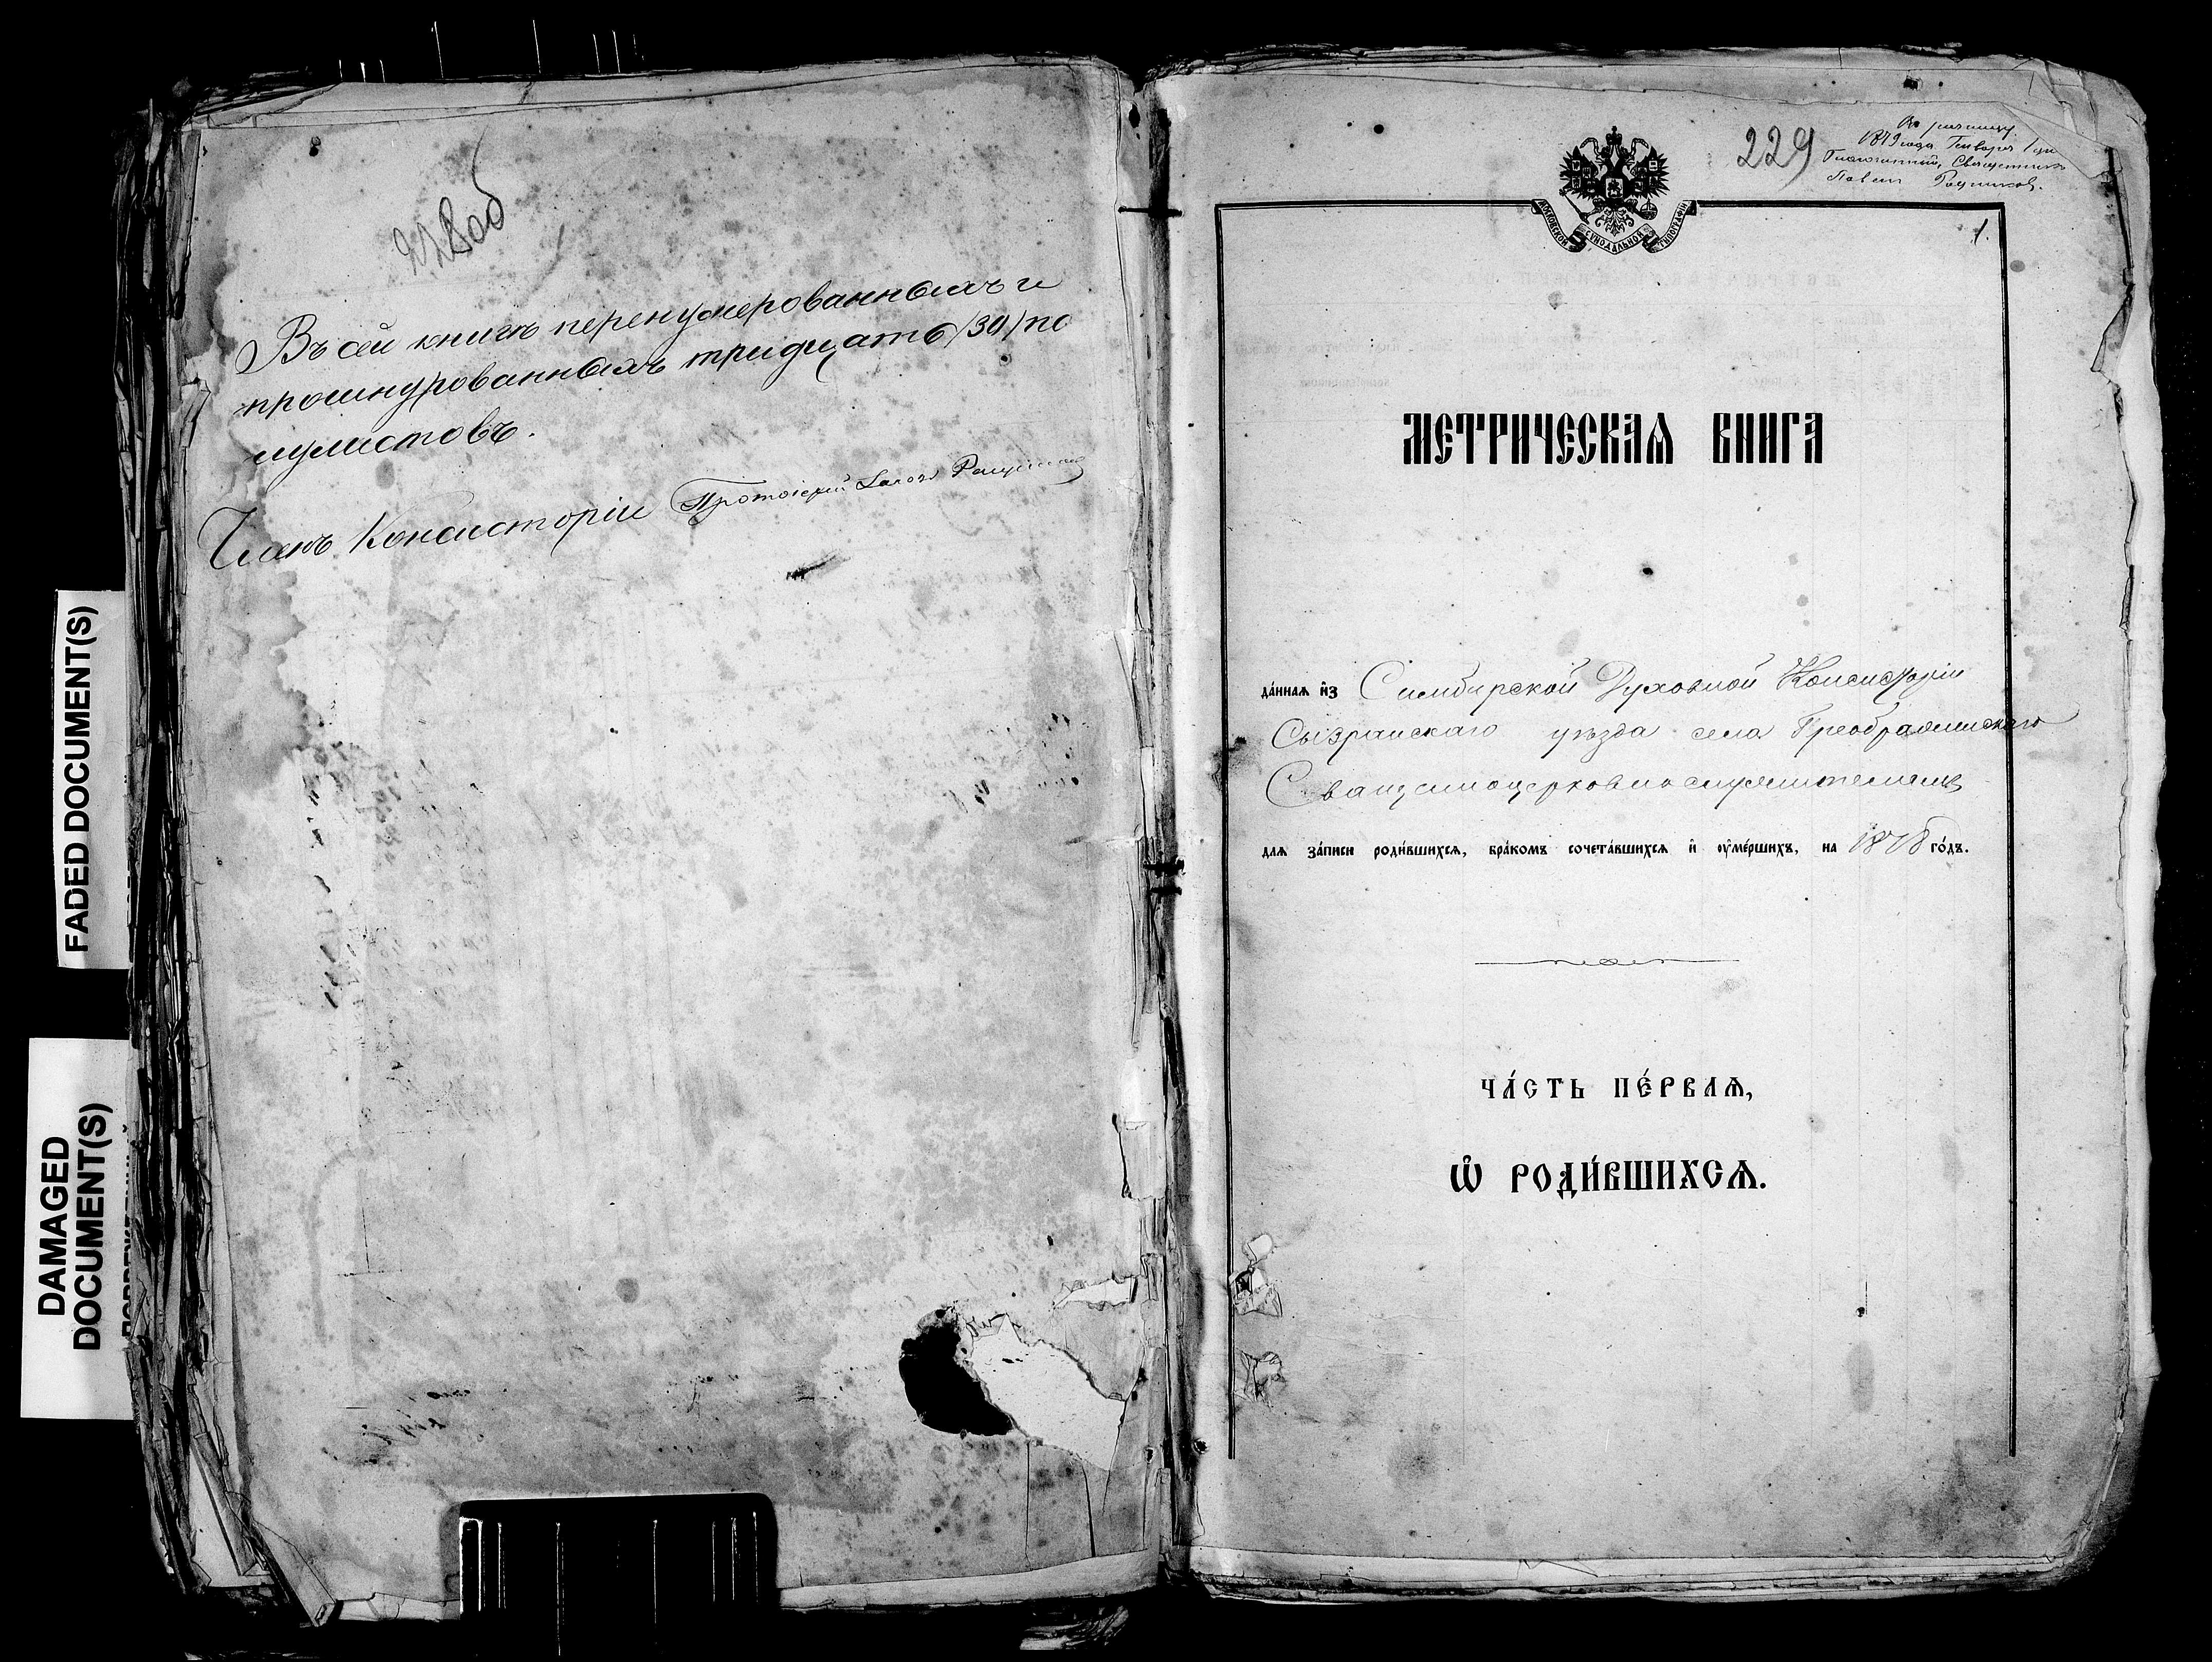 228об
Въ сей книгѣ перенумерованныхъ и
прошнурованныхъ тридцать /30/ по
лулистовъ.
Членъ Консисторіи Протоіерей
FADED DOCUMENT(S)
DAMAGED
DOCUMENT(S)
229
1879 года Генваря
Благочинный, Священникъ
Павелъ
МОСКОВСКОЙ СѴНОДАЛЬНОЙ ТИПОГРАФІИ
1.
МЕТРИЧЕСКАѦ КНИГА
да́ннаѧ и҆з Симбирской Духовной Консисторіи
Сызранскаго уѣзда села Преображенскаго
Священноцерковнослужителямъ
длѧ за́писи роди́вшихсѧ, бра́комъ сочета́вшихсѧ и҆ ᲂу҆ме́ршихъ, на 1878 го́дъ.
ЧА́СТЬ ПЕ́РВАѦ,
Ѽ РОДИ́ВШИХСѦ.